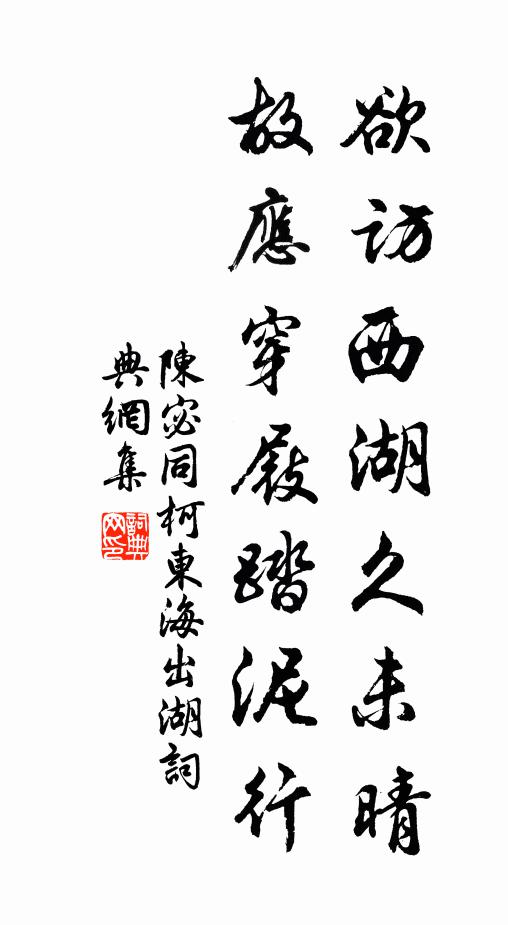 欲訪西湖久未晴
故應穿屐踏泥行
陳宓同柯東海出湖詞
典網集
詞典
网印